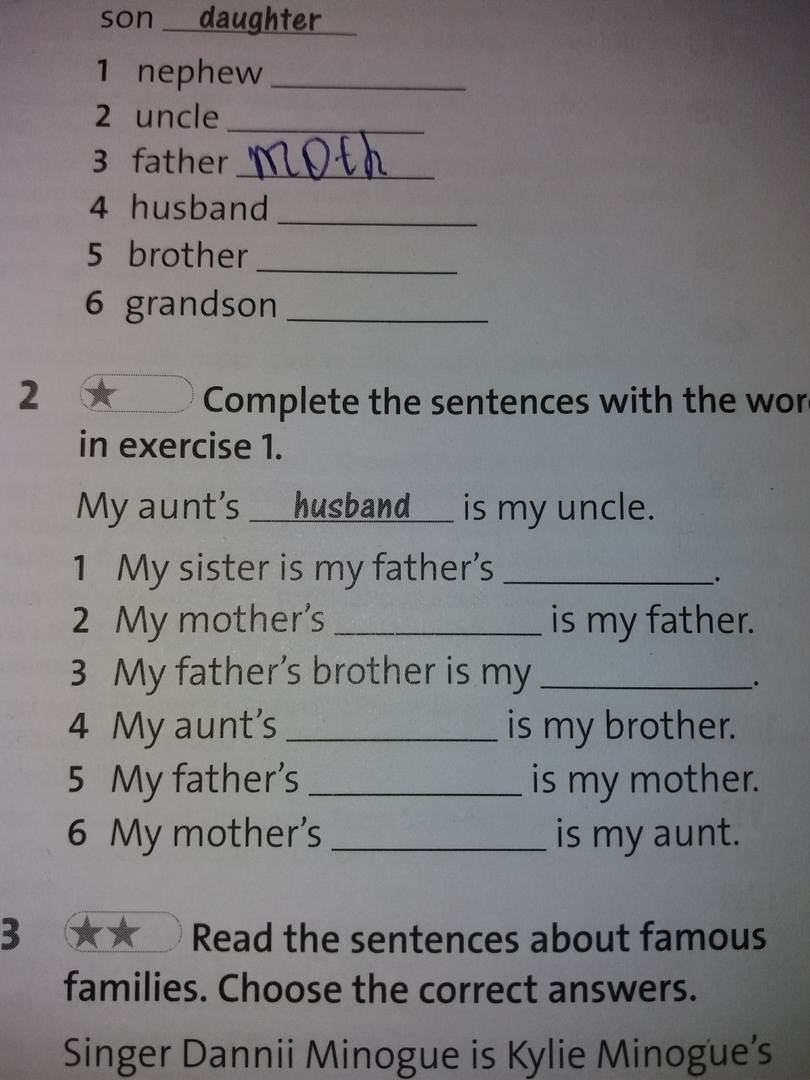 son daughter
1 nephew
2 uncle
3 father moth
4 husband
5 brother
6 grandson
2 Complete the sentences with the wor
in exercise 1.
My aunt's husband is my uncle.
1 My sister is my father's .
2 My mother's is my father.
3 My father's brother is my .
4 My aunt's is my brother.
5 My father's is my mother.
6 My mother's is my aunt.
3 Read the sentences about famous
families. Choose the correct answers.
Singer Dannii Minogue is Kylie Minogue's